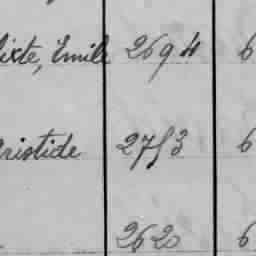 ixte, Emile 2694 6
Aristide 2753 6
2620 6